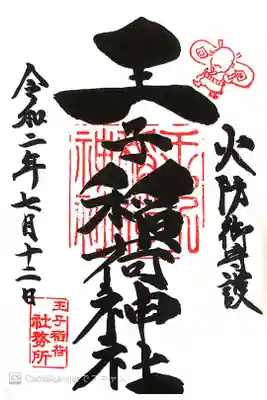 火防御守護
王子稲荷神社
令和二年七月十二日
王子稲荷
社務所